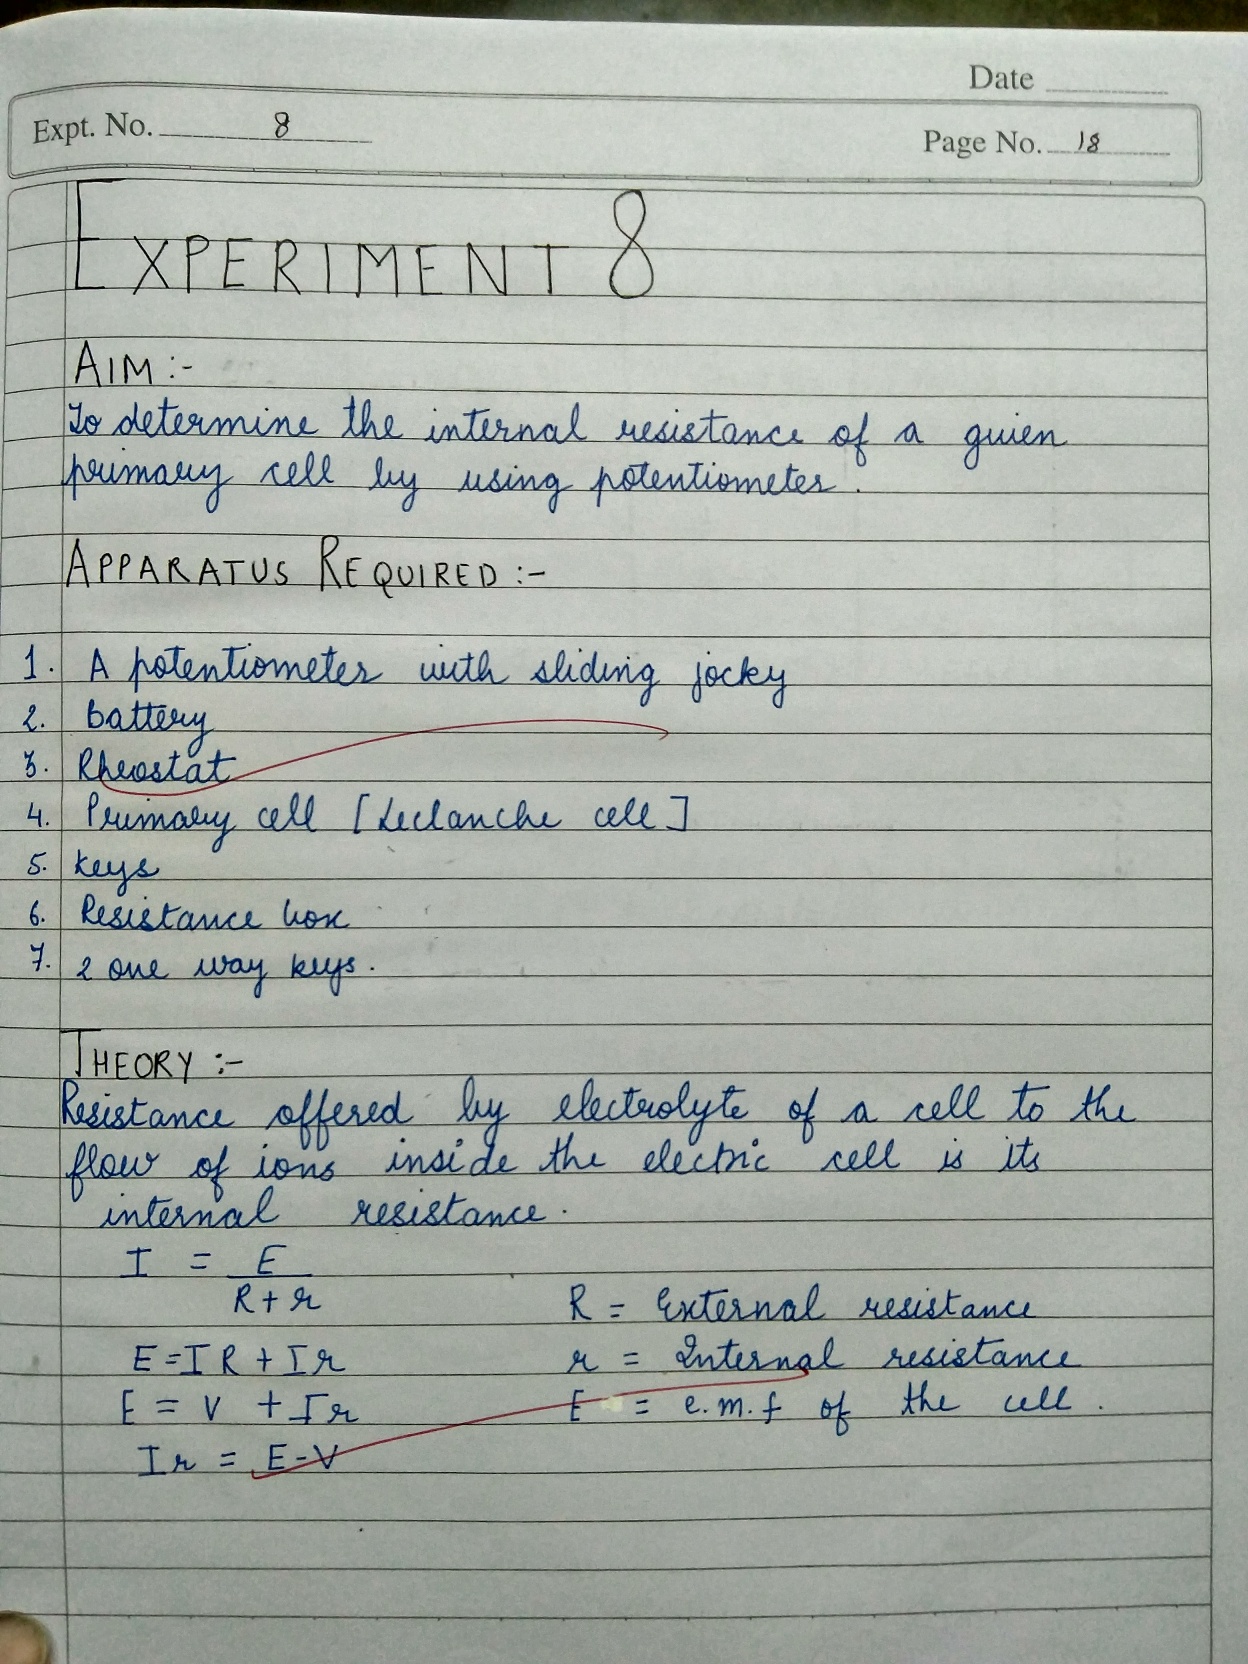 Date
Expt. No. 8
Page No. 18
EXPERIMENT 8
AIM :-
To determine the internal resistance of a given
primary cell by using potentiometer.
APPARATUS REQUIRED :-
1. A potentiometer with sliding jocky
2. Battery
3. Rheostat
4. Primary cell [Leclanche cell]
5. keys
6. Resistance box
7. 2 one way keys.
THEORY :-
Resistance offered by electrolyte of a cell to the
flow of ions inside the electric cell is its
internal resistance.
I = E
R + r
R = External resistance
E = I R + I r
r = Internal resistance
E = V + I r
E = e.m.f of the cell.
I r = E - V